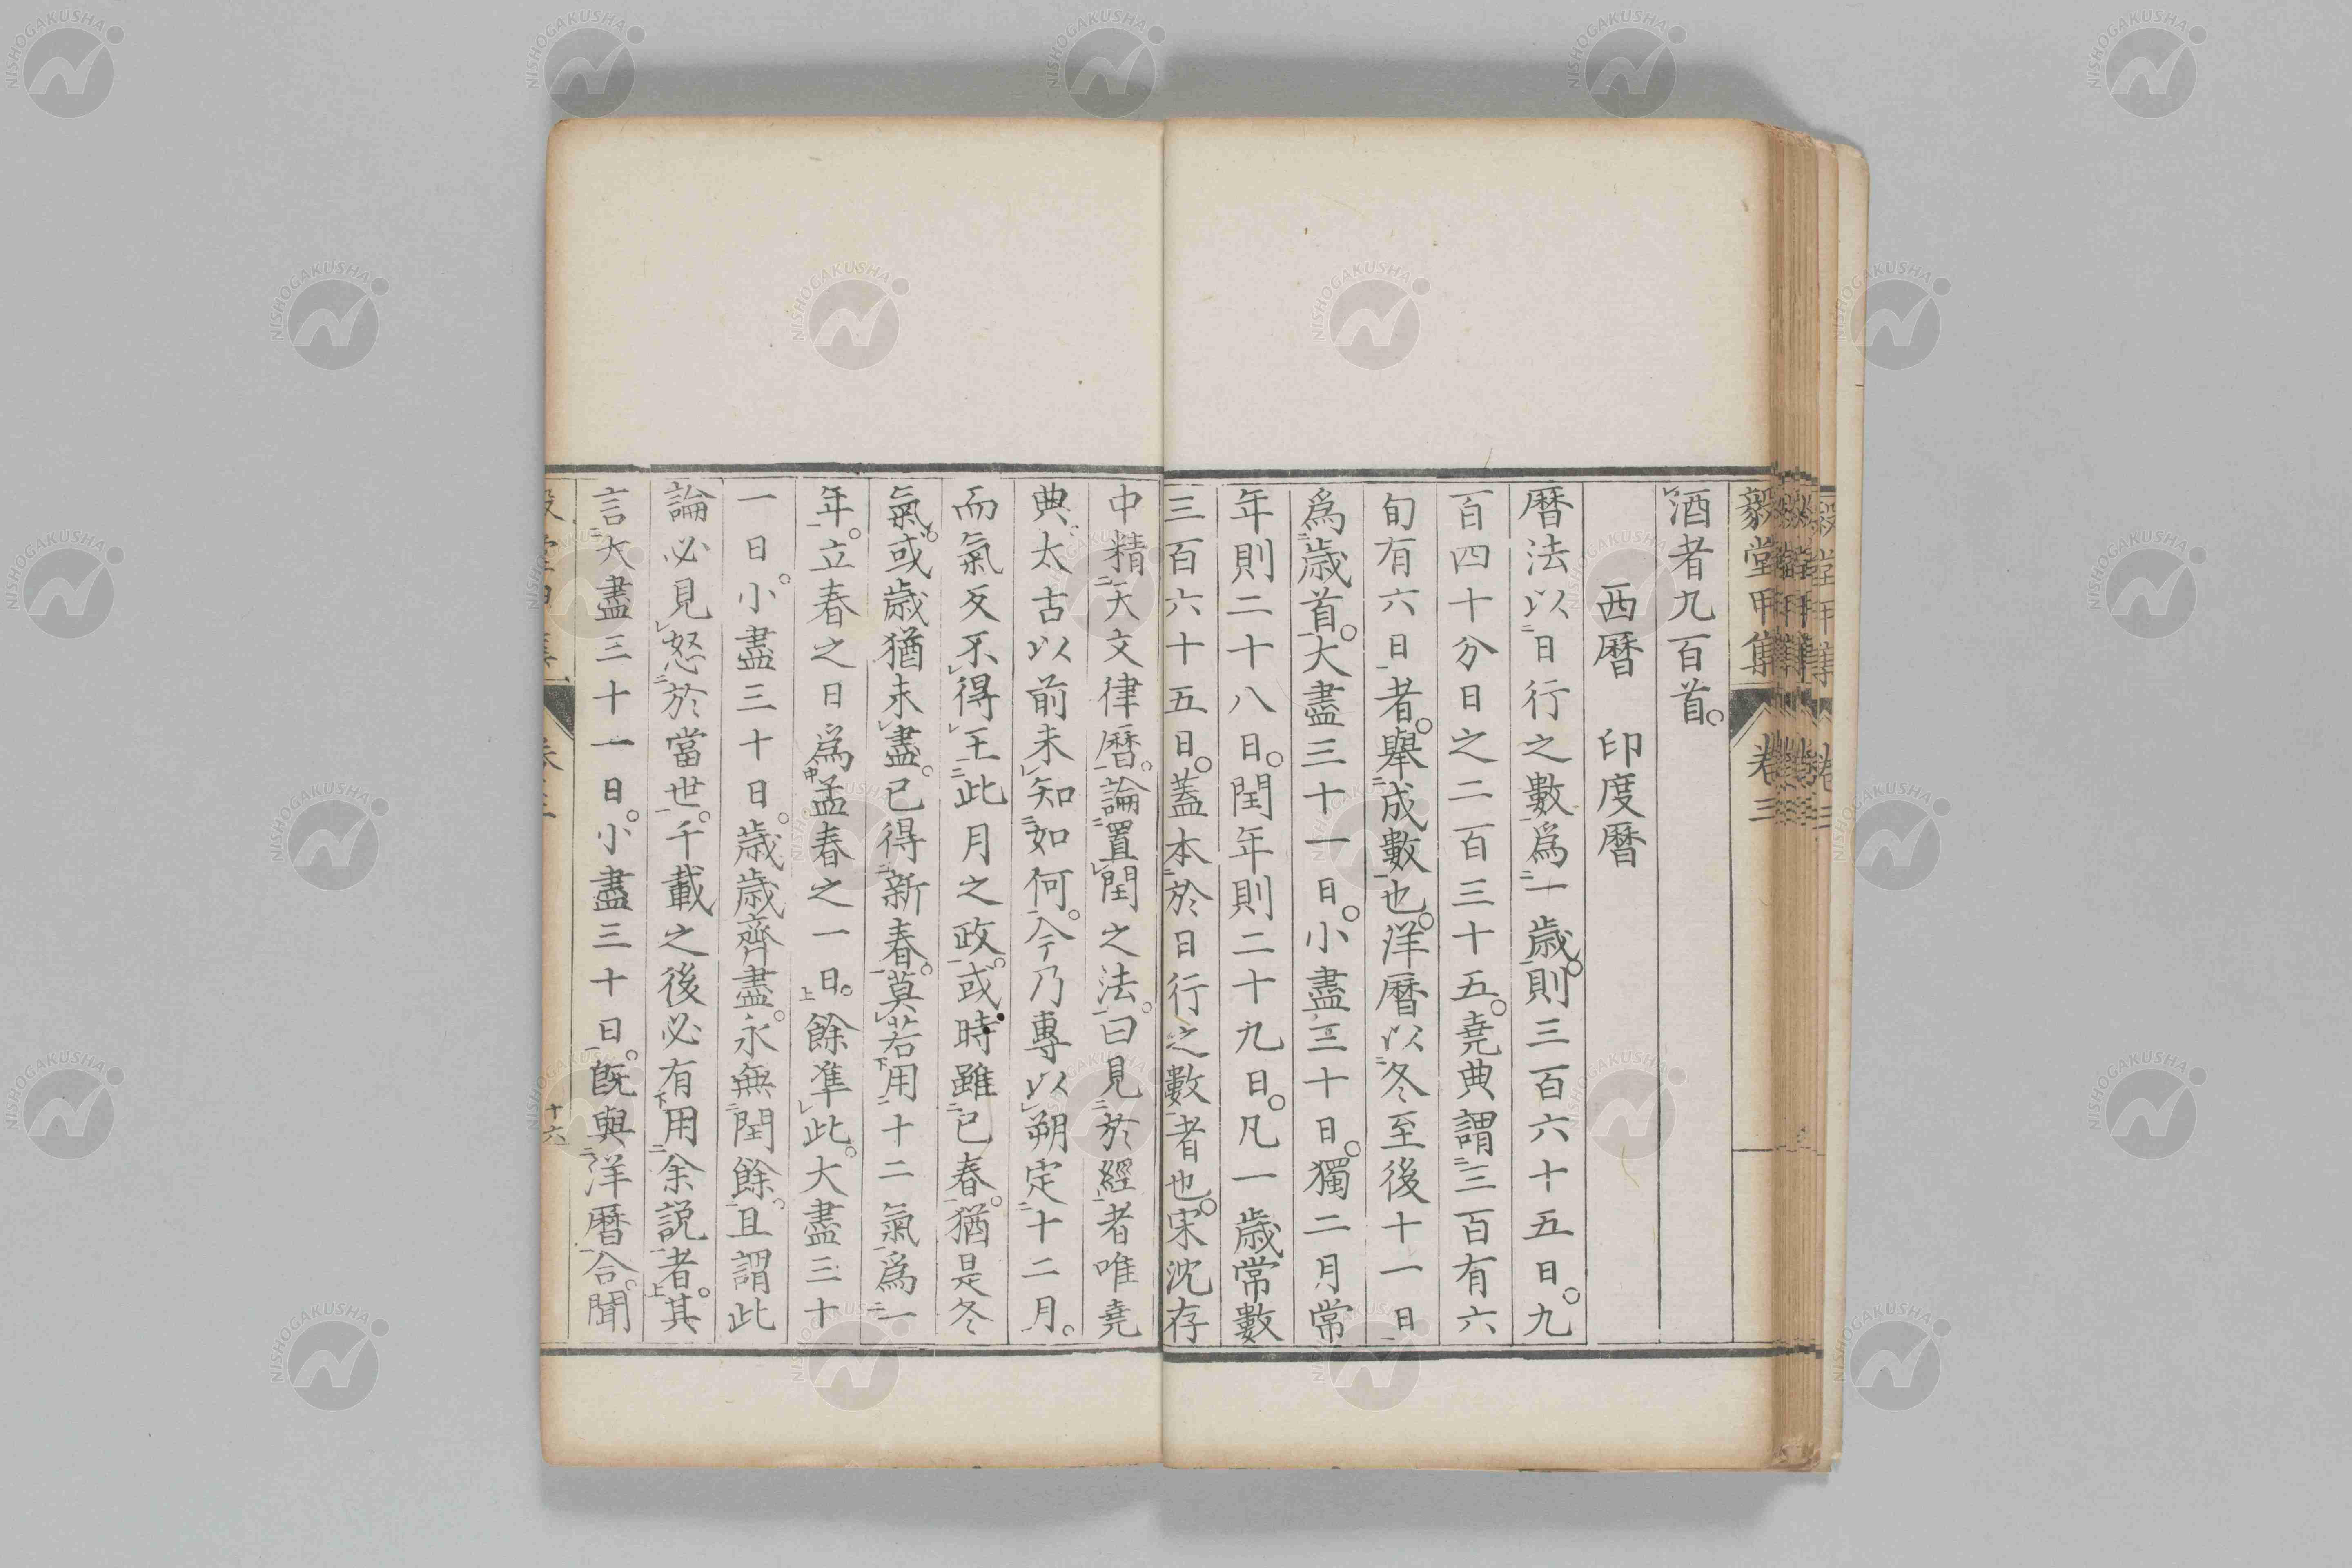 毅堂甲集 卷三
酒者九百首。
西暦 印度暦
暦法以日行之數爲一歳。則三百六十五日。九
百四十分日之二百三十五。堯典謂三百有六
旬有六日者。舉成數也。洋暦以冬至後十一日
爲歳首。大盡三十一日。小盡三十日。獨二月常
年則二十八日。閏年則二十九日。凡一歳常數
三百六十五日。蓋本於日行之數者也。宋沈存
中精天文律暦。論置閏之法。曰見於經者唯堯
典。太古以前未知如何。今乃專以朔定十二月。
而氣反不得王此月之政。或時雖已春。猶是冬
氣。或歳猶未盡。已得新春。莫若用十二氣爲一
年。立春之日爲孟春之一日。餘準此。大盡三十
一日。小盡三十日。歳歳齊盡。永無閏餘。且謂此
論必見怒於當世。千載之後必有用余説者。其
言大盡三十一日。小盡三十日。既與洋暦合。聞
十六
NISHOGAKUSHA